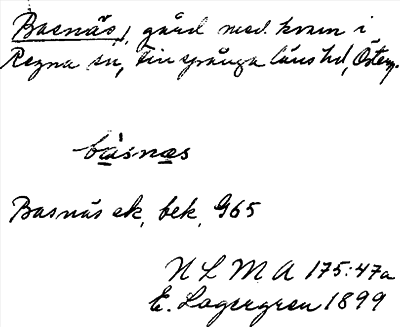 Basnäs, gård med kvarn i
Regna sn, Finspånga läns hd, Österg.
bàsnæs
Basnäs ek. bek. G65
N L M A 175:47a
E. Lagergren 1899